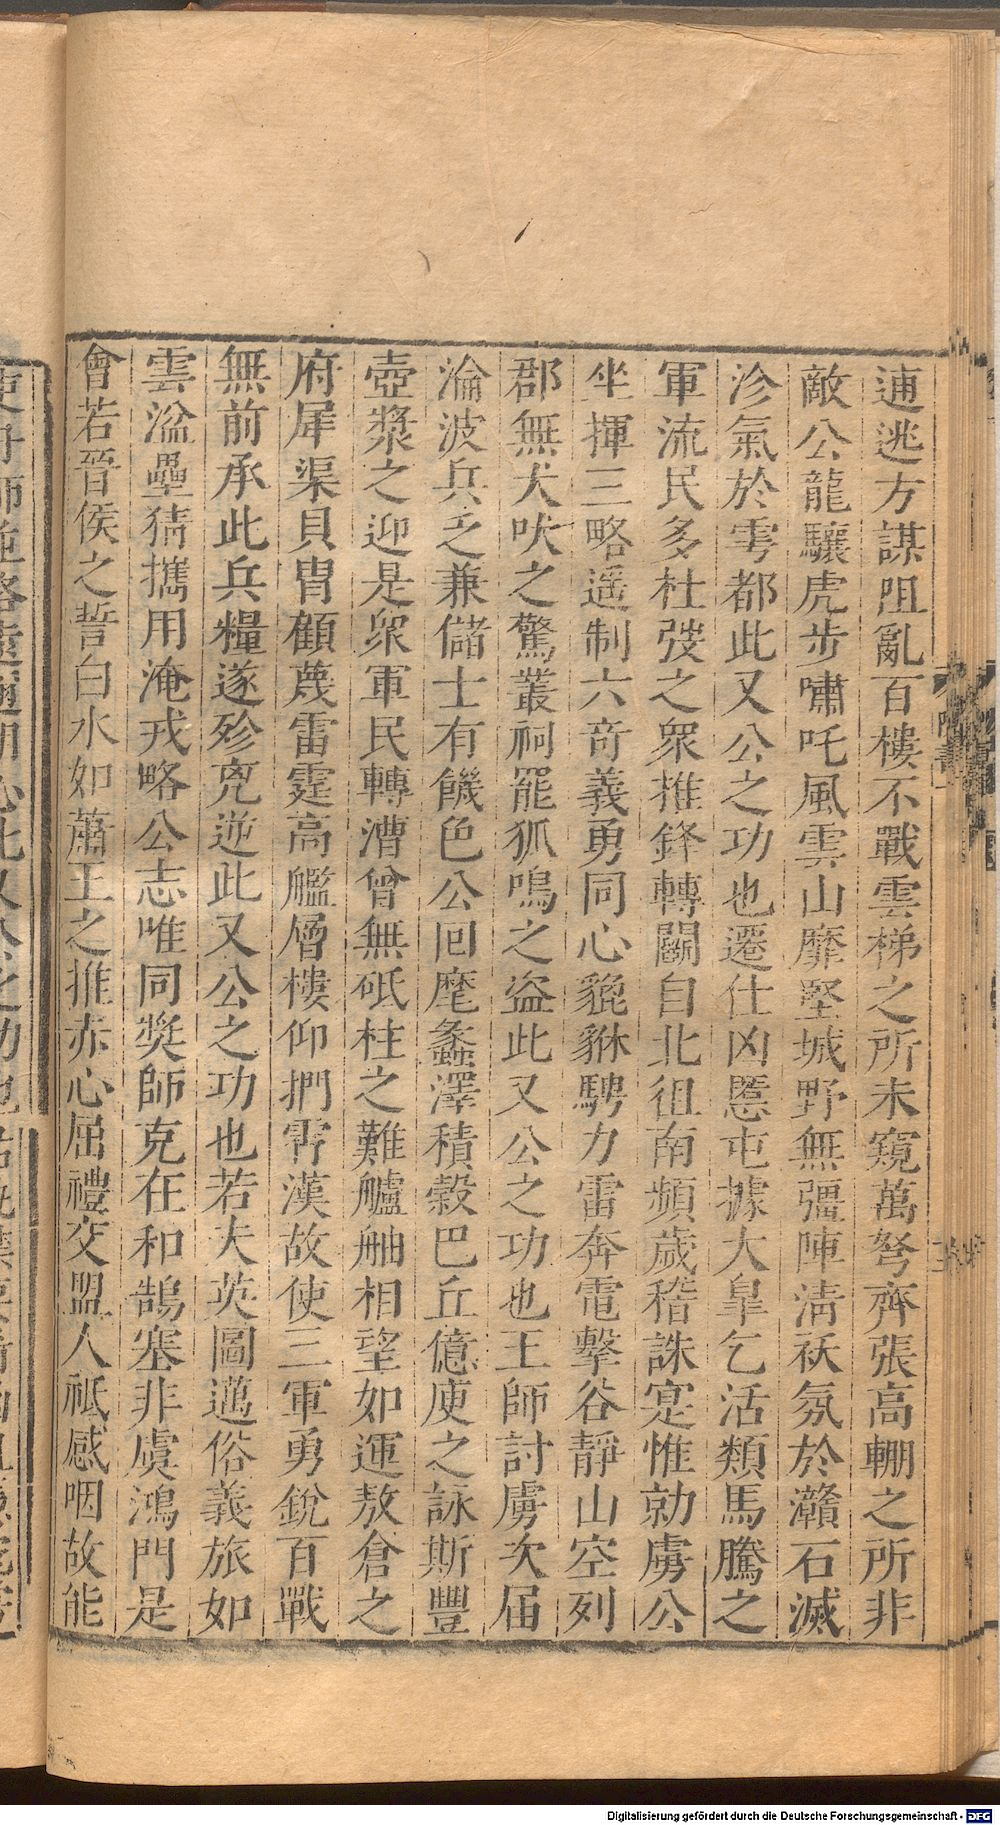 逋逃方謀阻亂百樓不戰雲梯之所未窺萬弩齊張高輣之所非
敵公龍驤虎步嘯吒風雲山靡堅城野無彊陣淸祅氛於灨石滅
沴氣於雩都此又公之功也遷仕凶慝屯據大臯乞活類馬騰之
軍流民多杜弢之衆推鋒轉鬬自北徂南頻歲稽誅寔惟勍虜公
坐揮三略遥制六竒義勇同心貔貅騁力雷奔電擊谷靜山空列
郡無犬吠之驚叢祠罷狐鳴之盜此又公之功也王師討虜次届
淪波兵乏兼儲士有饑色公回麾蠡澤積穀巴丘億庾之詠斯豐
壺漿之迎是衆軍民轉漕曾無砥柱之難艫舳相望如運敖倉之
府犀渠貝胄顧蔑雷霆高艦層樓仰捫霄漢故使三軍勇銳百戰
無前承此兵糧遂殄兇逆此又公之功也若夫英圖邁俗義旅如
雲湓壘猜攜用淹戎略公志唯同奬師克在和鵠塞非虞鴻門是
會若晉侯之誓白水如蕭王之推赤心屈禮交盟人祗感咽故能
Digitalisierung gefördert durch die Deutsche Forschungsgemeinschaft - DFG